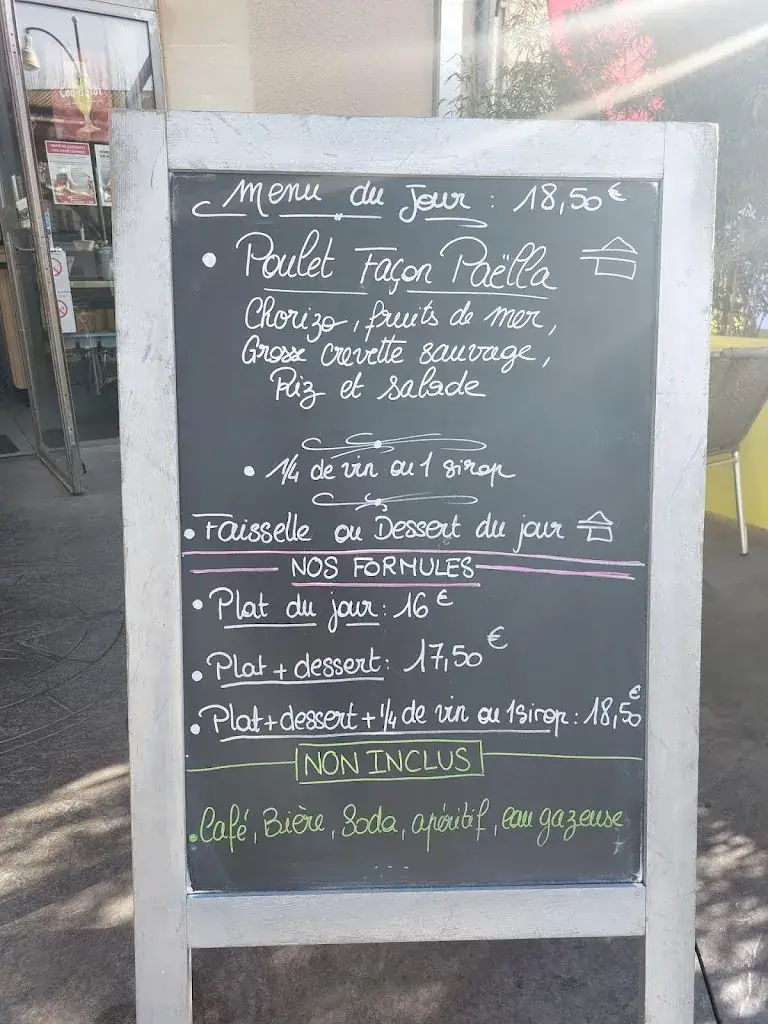 Menu du Jour : 18,50€
• Poulet Façon Paëlla
Chorizo, fruits de mer,
Grosse crevette sauvage,
Riz et salade
• 1/4 de vin ou 1 sirop
• Faisselle ou Dessert du jour
NOS FORMULES
• Plat du jour: 16€
• Plat + dessert: 17,50€
• Plat+dessert+1/4 de vin ou 1 sirop: 18,50€
NON INCLUS
• Café, Bière, Soda, apéritif, eau gazeuse